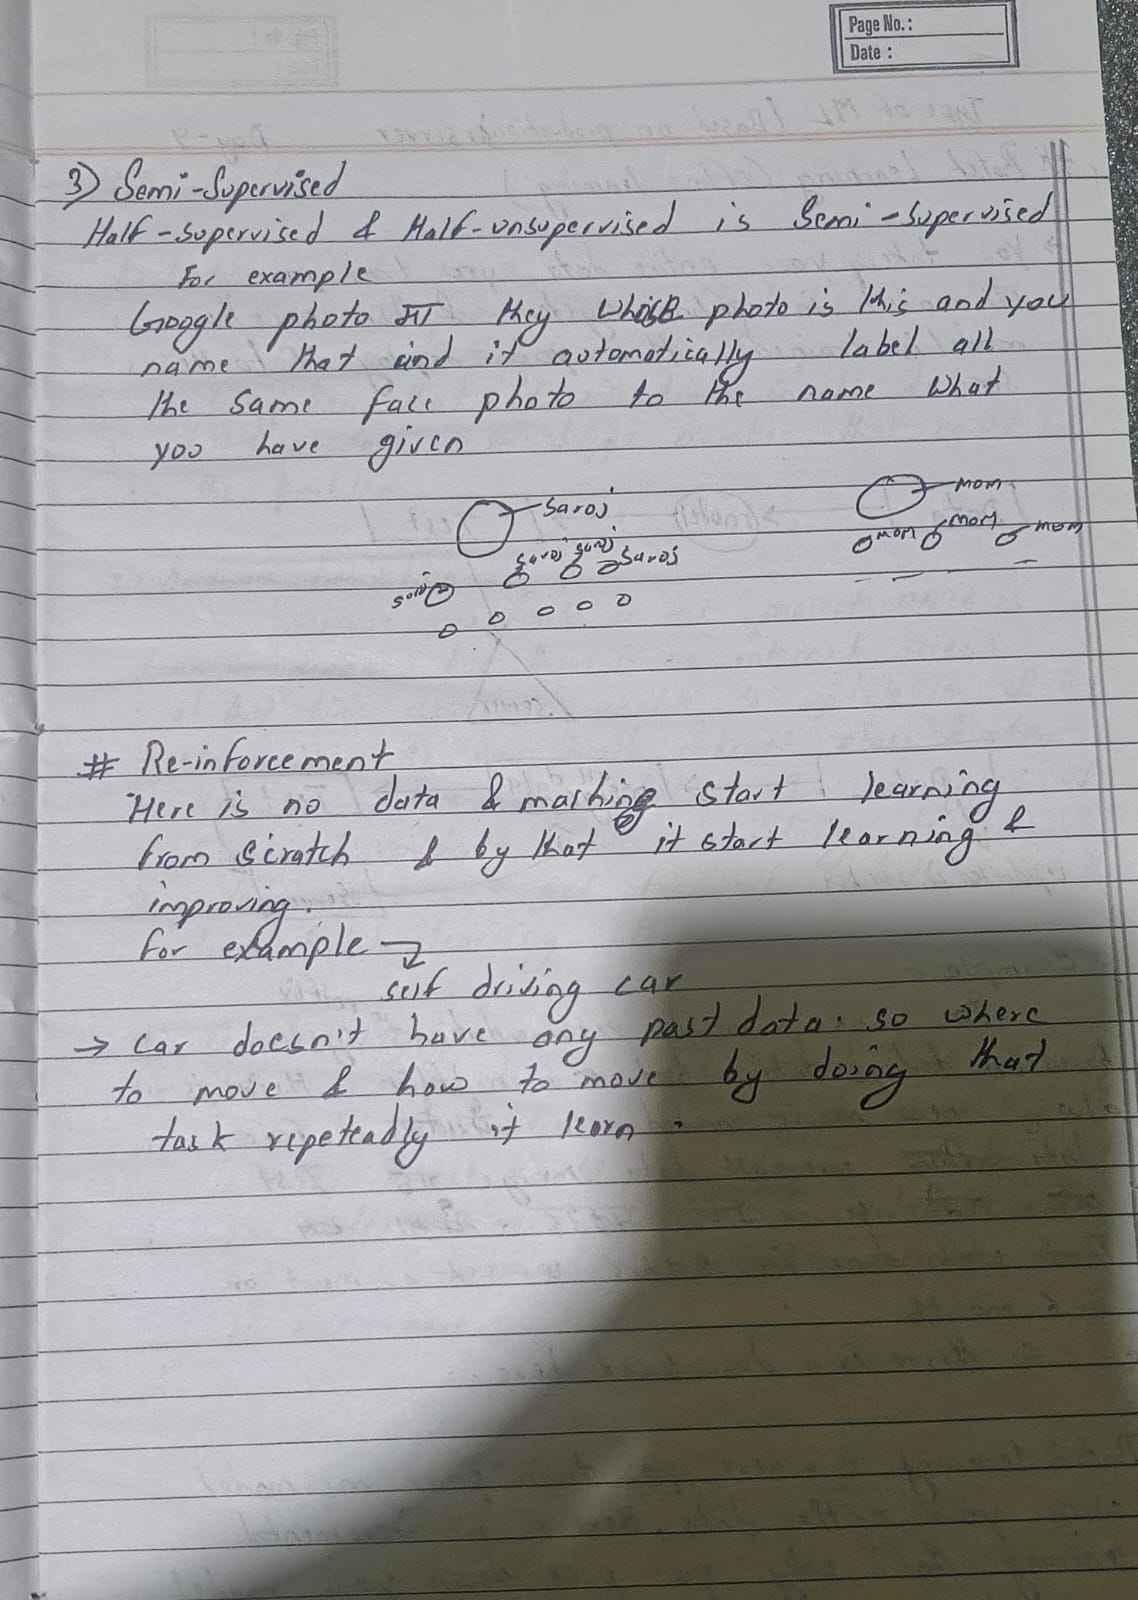 Page No. :
Date :
3) Semi-Supervised
Half-supervised & Half-unsupervised is Semi-supervised
For example
Google photo मा they whose photo is this and you
name that and it automatically label all
the same face photo to the name what
you have given
Saroj
mom
Saroj Saroj Saroj
mom mom mom
Saroj
# Re-inforcement
Here is no data & mashing start learning
from scratch & by that it start learning &
improving.
for example
self driving car
→ car doesn't have any past data. so where
to move & how to move by doing that
task repeteadly it learn.